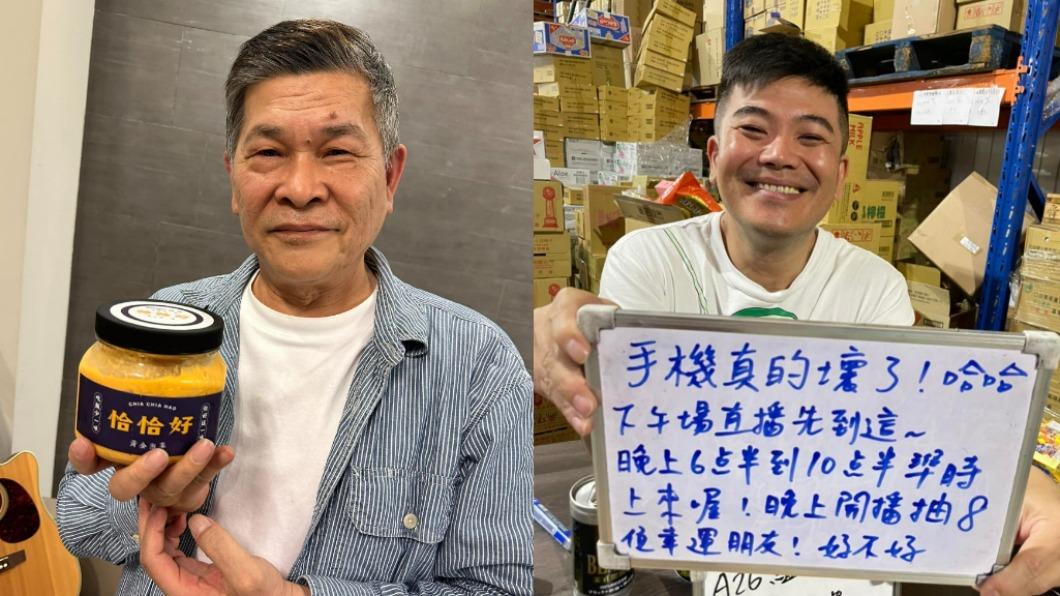 CHIA CHIA HAO
恰恰好
黃金泡菜
手機真的壞了！哈哈
下午場直播先到這~
晚上6点半到10点半準時
上來喔！晚上開播抽8
位幸運朋友！好不好
APPLE
MILK
檸檬
A26